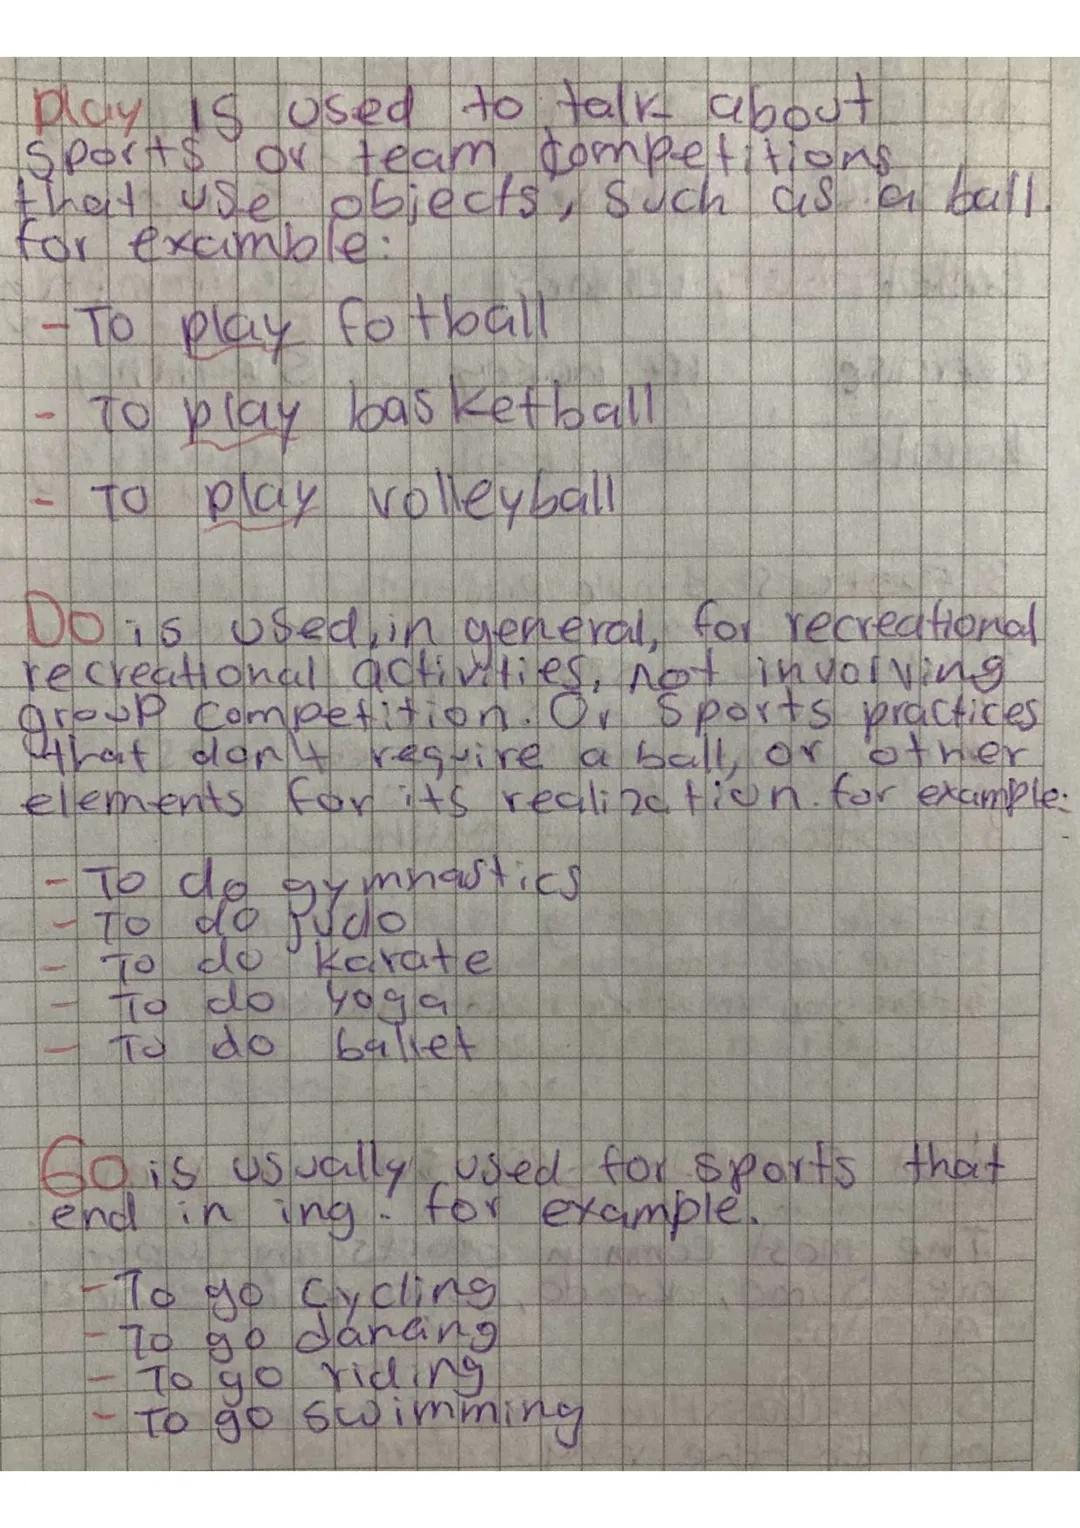 Play is used to talk about
Sports or team competitions
that use objects, such as a ball.
for examble:
- To play fotball
- To play basketball
- To play volleyball
Do is used, in general, for recreational
recreational activities, not involving
group competition. Or Sports practices
that don't require a ball, or other
elements for its realization. for example:
- To do gymnastics
- To do judo
- To do karate
- To do yoga
- To do ballet
Go is usually used for sports that
end in ing. for example.
- To go cycling
- To go dancing
- To go riding
- To go swimming